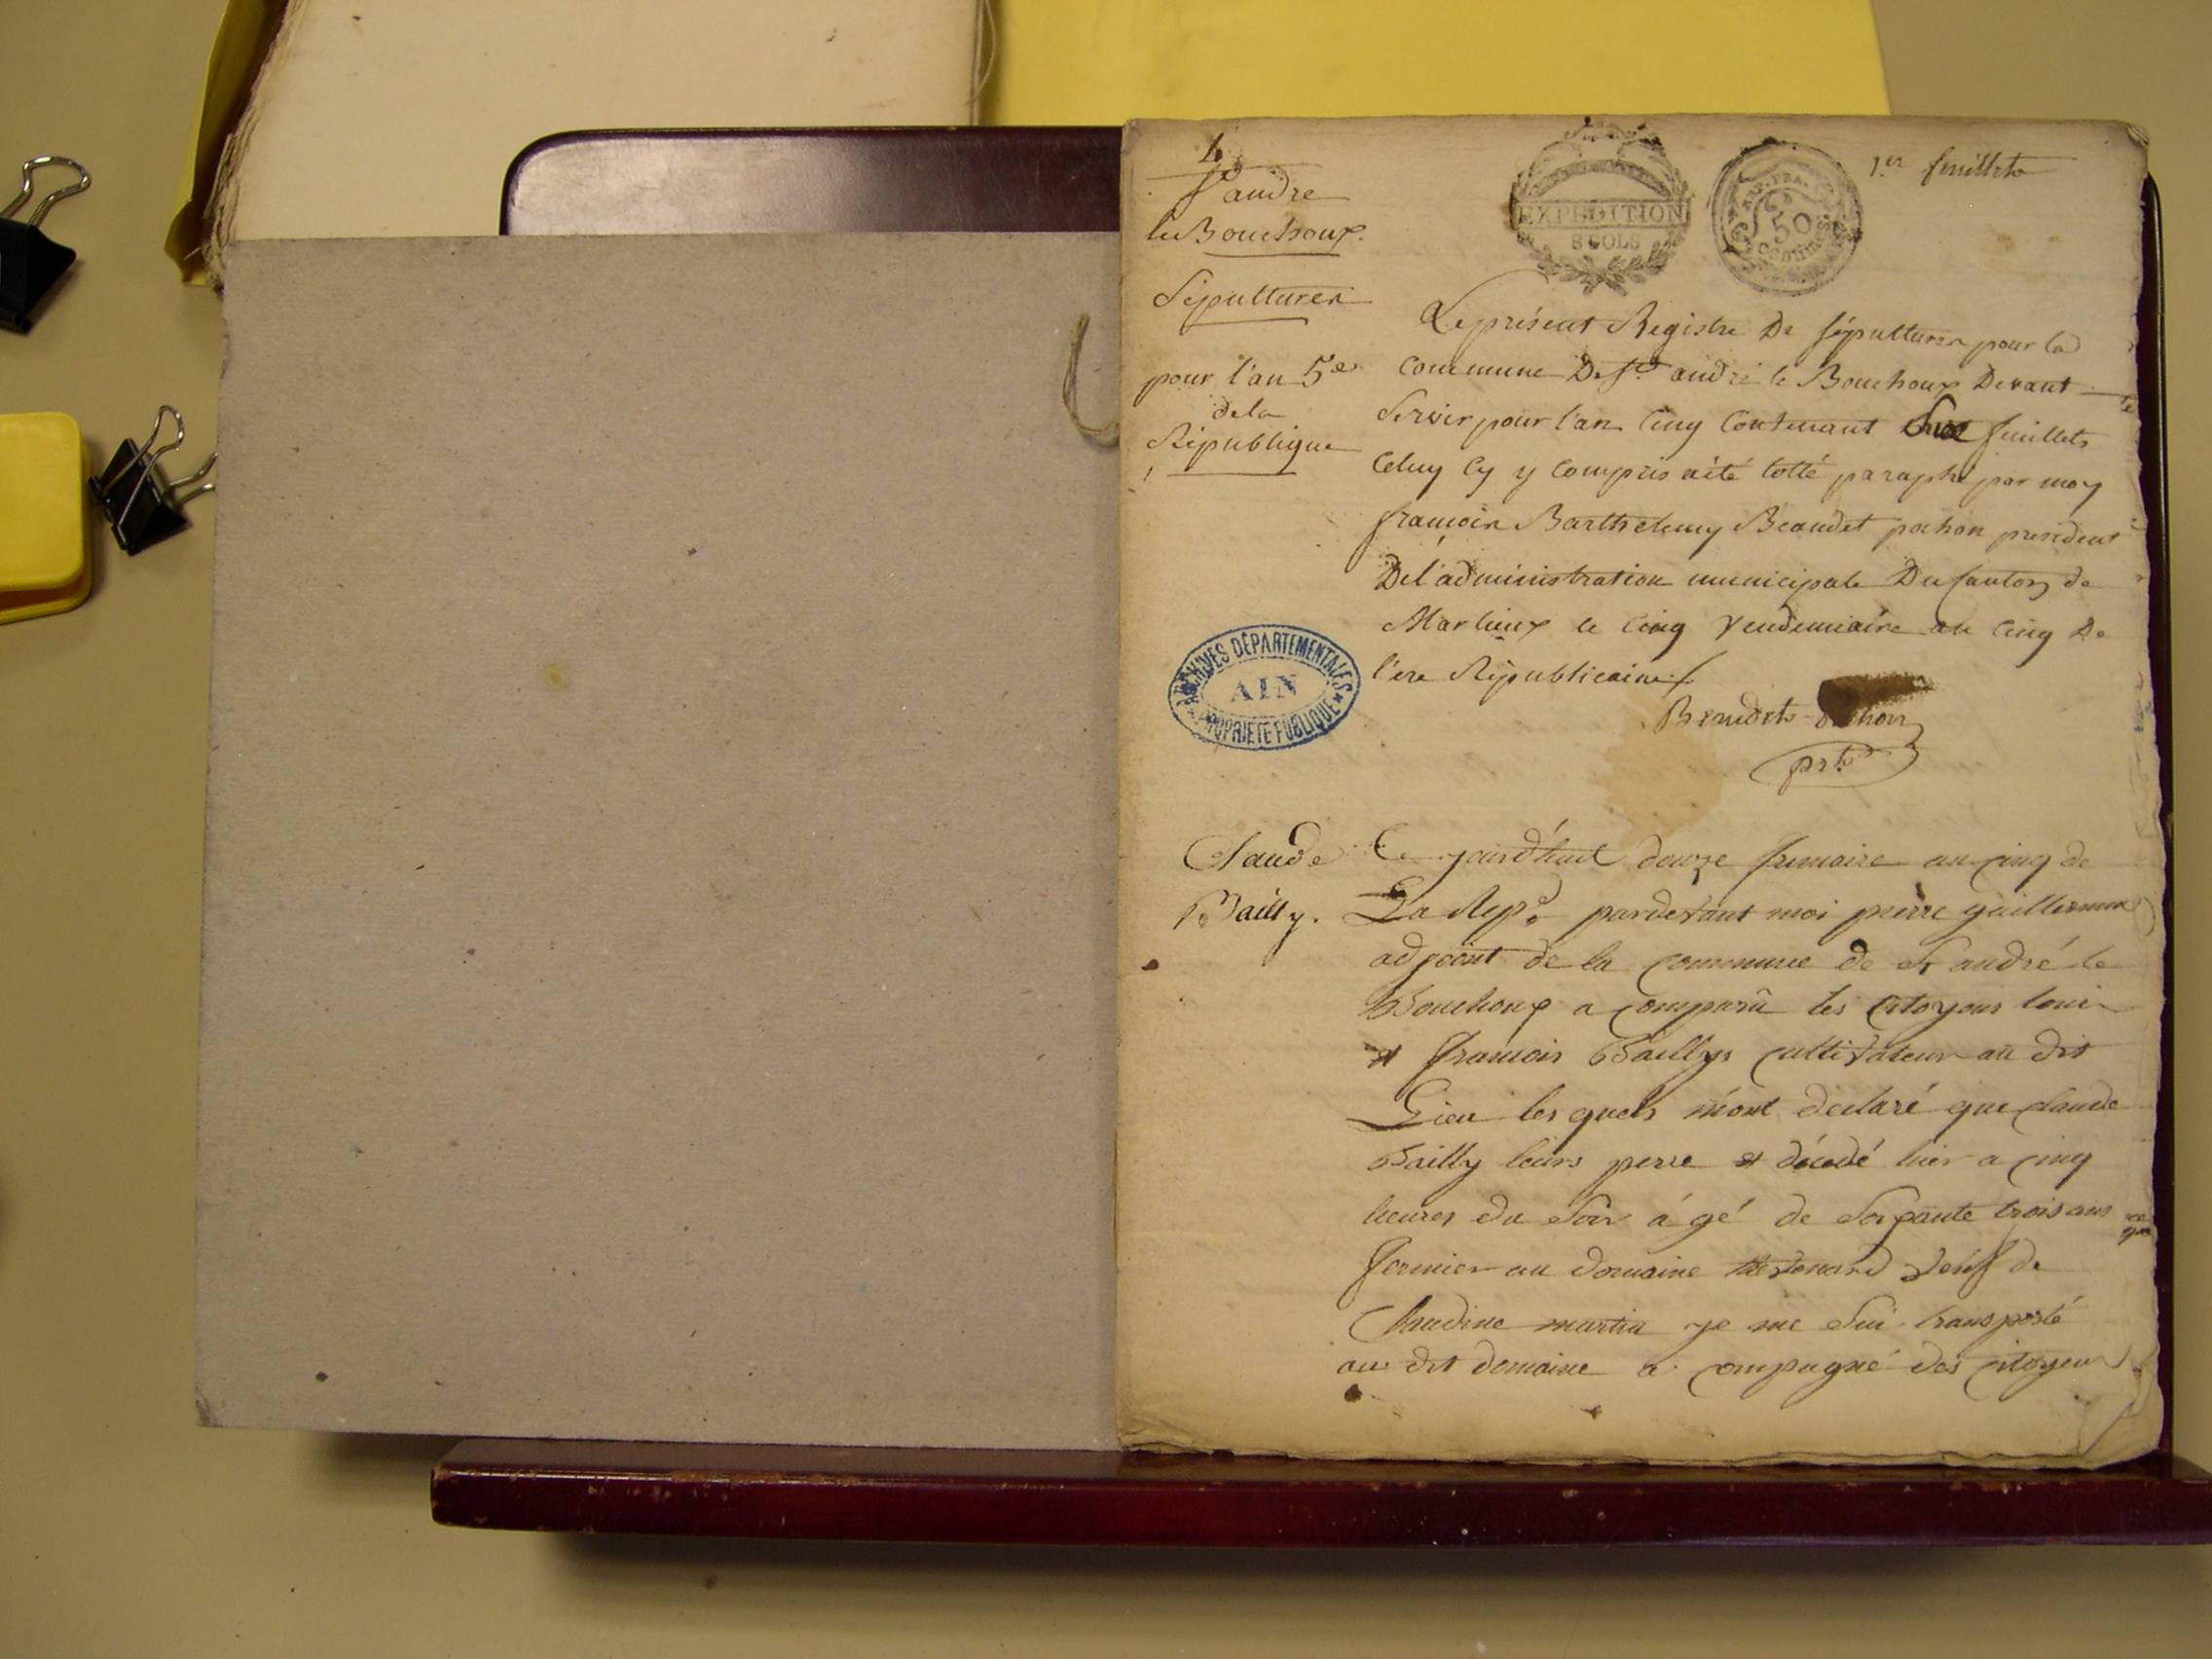 1er feuillet
EXPEDITION
8 SOLS
REP. FRA.
50
Centimes
St andré
le Bouchoux.
Sépultures
pour l'an 5e
de la
République
Le présent Registre De sépultures pour la
Commune De St andré le Bouchoux Devant
Servir pour l'an Cinq Contenant feuillets
Celuy Cy y Compris a été Cotté paraphé par moy
françois Barthelemy Beaudet pochon president
De l'administration municipale Du Canton de
Marlieux le Cinq Vendemiaire an Cinq De
l'ere Républicaine /.
ARCHIVES DÉPARTEMENTALES
AIN
PROPRIÉTÉ PUBLIQUE
Beaudet pochon
prt
Claude
Bailly.
Ce jourd'huit douze frimaire an cinq de
La Repe pardevant moi pierre guillermin
adjoint de la commune de St andré le
Bouchoux a comparu les citoyens loui
et françois Baillys cultivateur au dit
Lieu les quels m'ont déclaré que claude
Bailly leurs perre et décédé hier a cinq
heures du Soir âgé de Soixante trois ans
fermier au domaine veuf de
Claudine martin je me Sui transporté
au dit domaine a compagné des citoyens